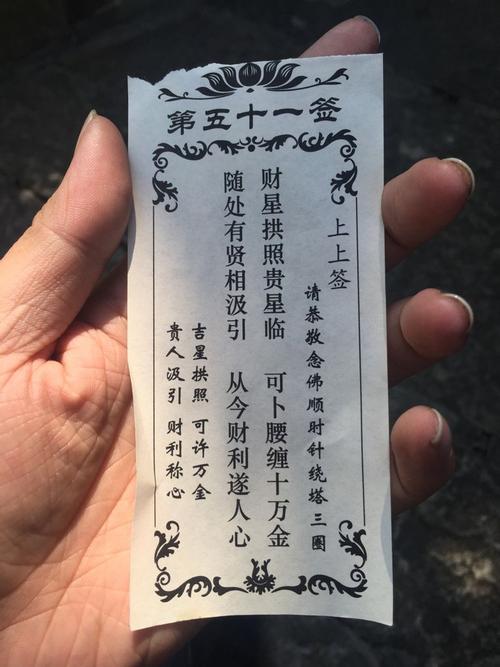 第五十一签
上上签
请恭敬念佛顺时针绕塔三圈
财星拱照贵星临 可卜腰缠十万金
随处有贤相汲引 从今财利遂人心
吉星拱照 可许万金
贵人汲引 财利称心